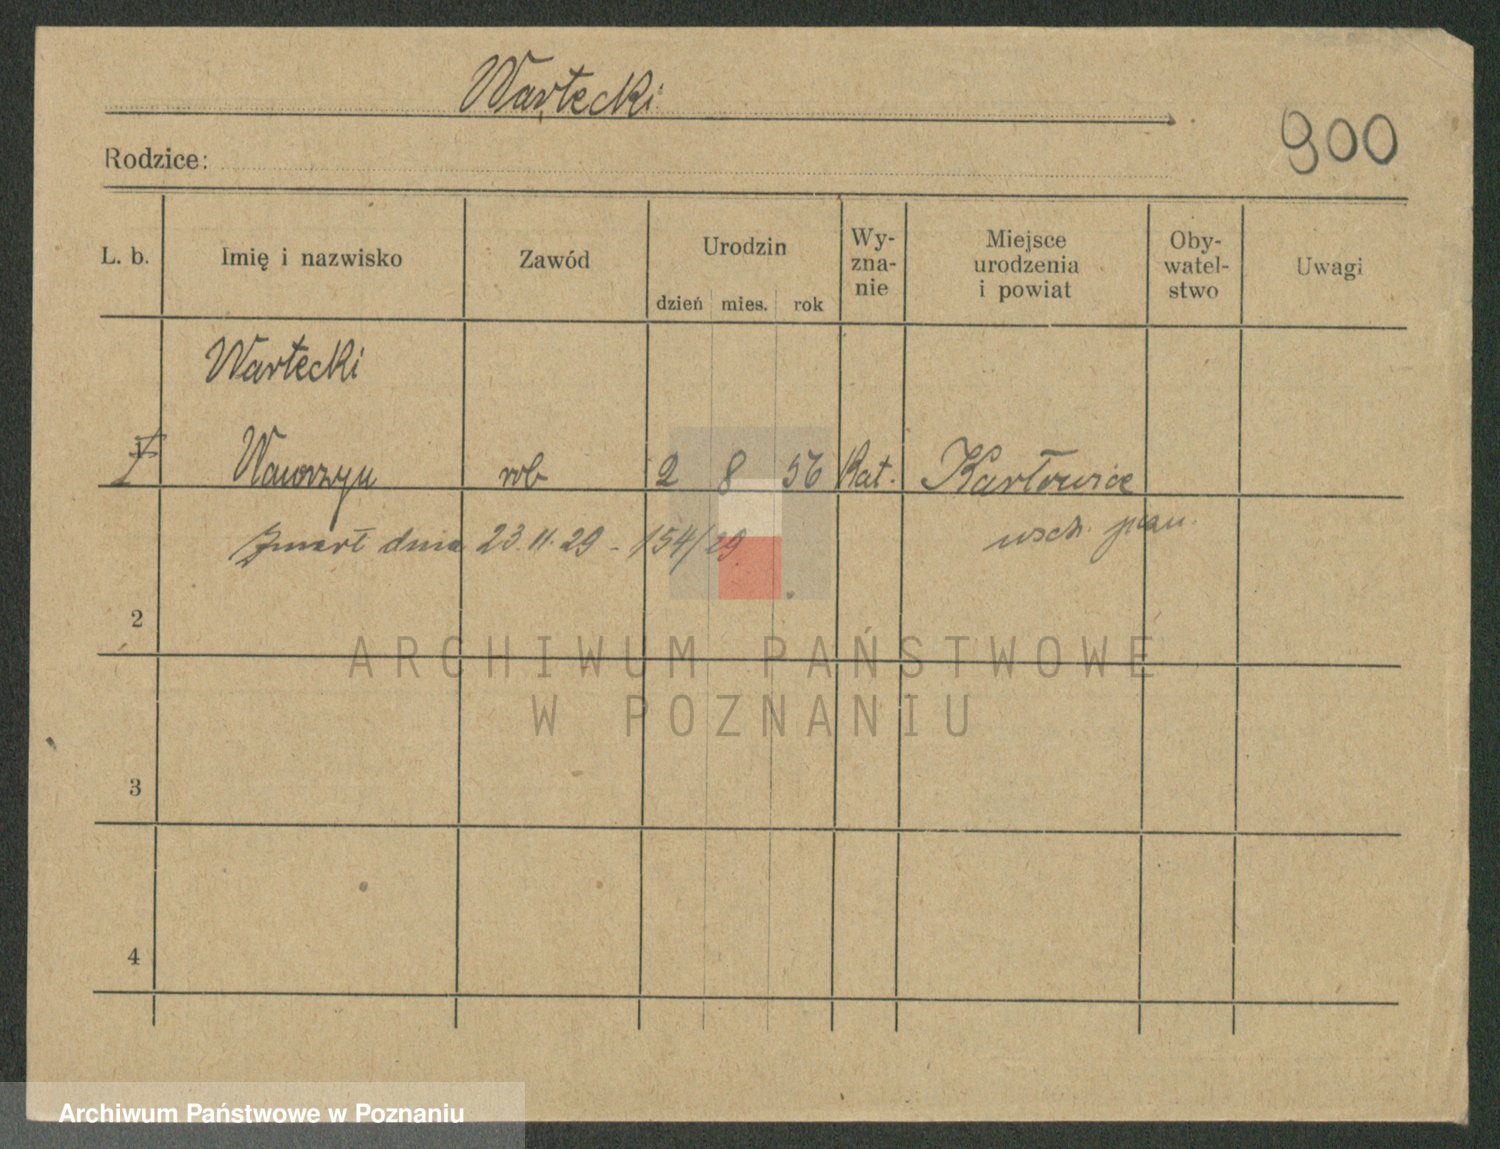 Wartecki
900
Rodzice:
L. b. Imię i nazwisko Zawód Urodzin dzień mies. rok Wy-zna-nie Miejsce urodzenia i powiat Oby-watel-stwo Uwagi
Wartecki
1 Wawrzyn rob 2 8 56 Kat. Karłowice
Zmarł dnia 23.11.29 - 154/29 wsch.
2
ARCHIWUM PAŃSTWOWE
W POZNANIU
3
4
Archiwum Państwowe w Poznaniu